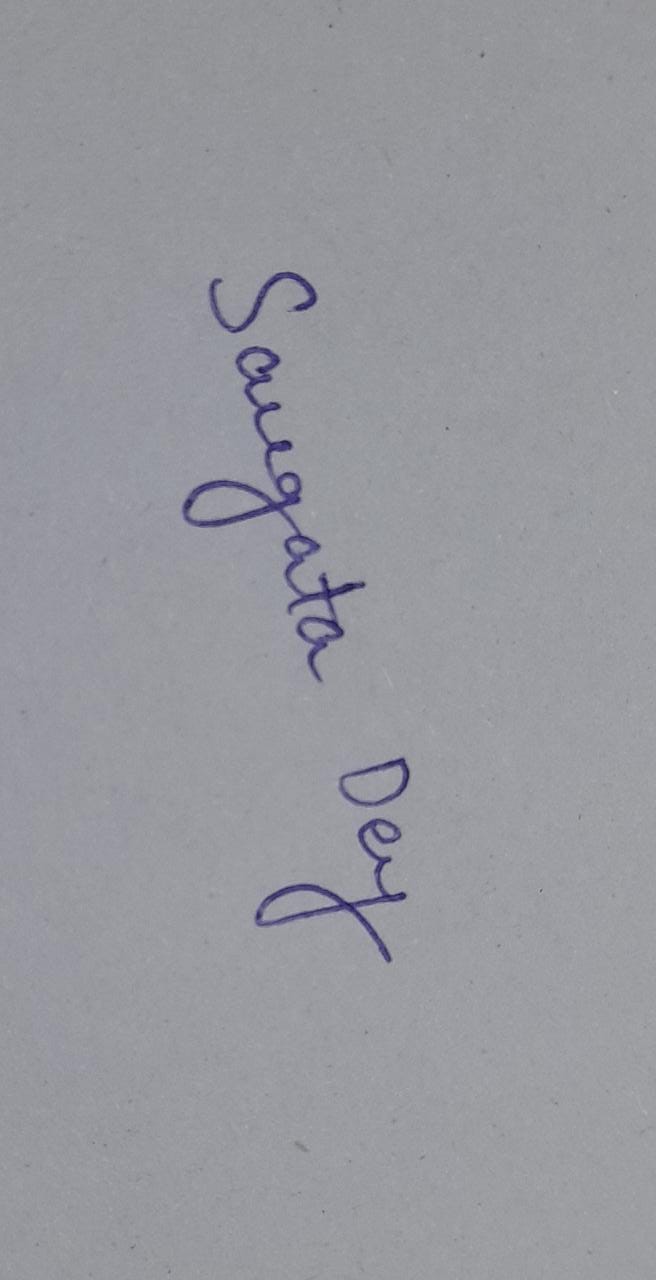 Saugata Dey